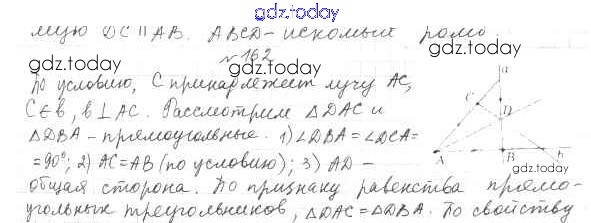 gdz.today
мую DC || AB. ABCD - искомый ромб
gdz.today
№162
По условию, C принадлежит лучу AC,
C∈b, b⊥AC. Рассмотрим △DAC и
△DBA - прямоугольные. 1) ∠DBA = ∠DCA =
= 90°; 2) AC = AB (по условию); 3) AD -
общая сторона. По признаку равенства прямо-
угольных треугольников, △DAC = △DBA. По свойству
a
C
D
A
B
b
gdz.today
gdz.today
gdz.today
gdz.today